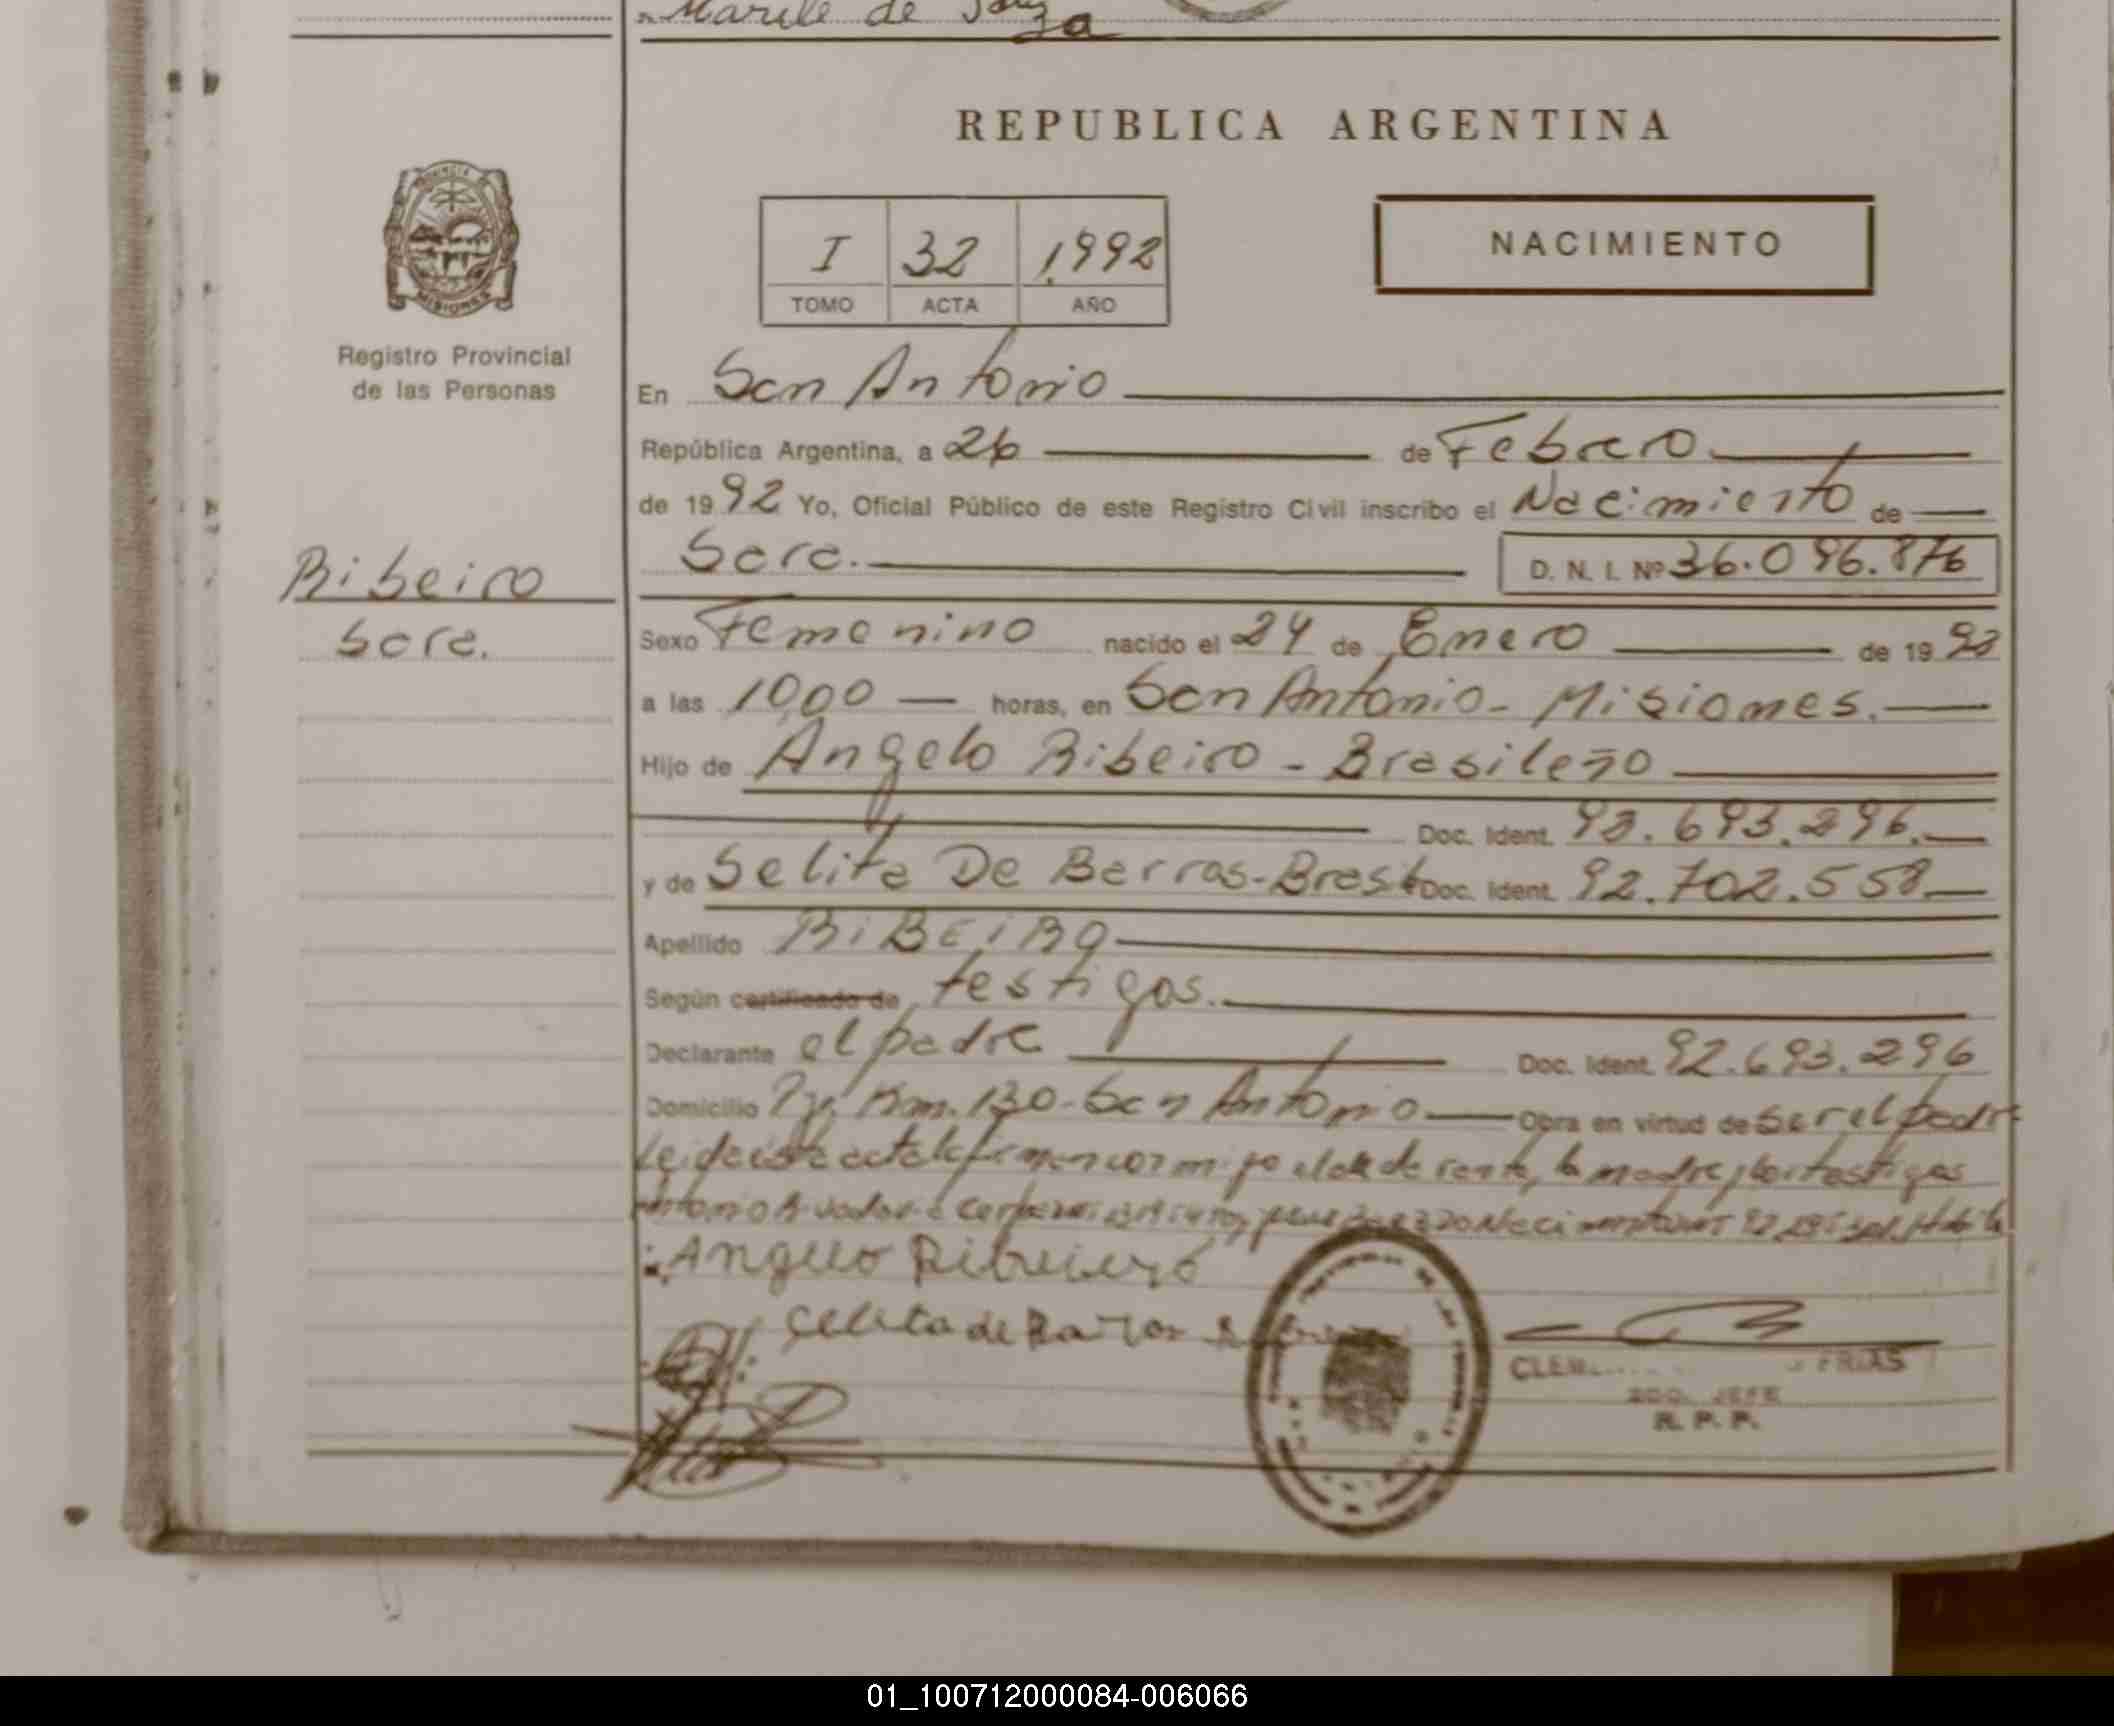 Marile de Souza
REPUBLICA ARGENTINA
PROVINCIA
MISIONES
Registro Provincial
de las Personas
I 32 1992
TOMO ACTA AÑO
NACIMIENTO
En San Antonio
República Argentina, a 26 de Febrero
de 1992 Yo, Oficial Público de este Registro Civil inscribo el Nacimiento de
Sara. D. N. I. Nº 36.096.876
Ribeiro
Sara.
Sexo Femenino nacido el 24 de Enero de 1992
a las 10,00 horas, en San Antonio - Misiones.
Hijo de Angelo Ribeiro - Brasileño
Doc. Ident. 92.693.296.
y de Selita De Barros - Brasil Doc. Ident. 92.702.558
Apellido RiBEiRO
Según certificado de testigos.
Declarante el padre Doc. Ident. 92.693.296
Domicilio Km. 130 - San Antonio Obra en virtud de ser el padre
Leida esta acta la firman conmigo el la madre y los testigos
Antonio
Angelo Ribeiero
Celita de Barros
CLEM FRIAS
2DO. JEFE
R. P. P.
01_100712000084-006066